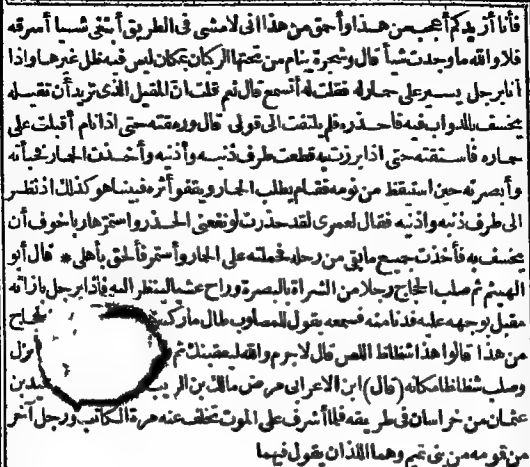 فأنا أزيدكم أعجب من هذا وأحق من هذا انى لامشى فى الطريق أبتغى شيأ أسرقه
فلا والله ما وجدت شيأ قال وشجرة ينام من تحتها الركبان بمكان ليس فيه ظل غيرها واذا
أنا برجل يسير على حمار له فقلت له أتسمع قال نعم قلت ان المقيل الذى تريد أن تقيله
يخسف بالدواب فيه فاحذره فلم يلتفت الى قولى قال ورمقته حتى اذا نام أقبلت على
حماره فاستقته حتى اذا برزت به قطعت طرف ذنبه وأذنيه وأخذت الحمار فخبأته
وأبصرته حين استيقظ من نومه فقام يطلب الحمار ويقفو أثره فبينما هو كذلك اذ نظر
الى طرف ذنبه واذنيه فقال لعمرى لقد حذرت لو نفعنى الحذر واستمر هاربا خوف أن
يخسف به فأخذت جميع ما بقى من رحله فحملته على الحمار وأستمر فألحق بأهلى * قال أبو
الهيثم ثم صلب الحجاج رجلا من الشراة بالبصرة وراح عشيا لينظر اليه فاذا برجل بازائه
مقبل بوجهه عليه فدنا منه فسمعه يقول للمصلوب طال ما ركبت
من هذا قالوا هذا شظاظ اللص قال لا جرم والله ليعقبنك ثم
وصلب شظاظا مكانه (قال) ابن الاعرابى مرض مالك بن الريب
عثمان من خراسان فى طريقه فلما أشرف على الموت تخلف عنه مرة الكاتب ورجل آخر
من قومه من بنى تميم وهما اللذان يقول فيهما